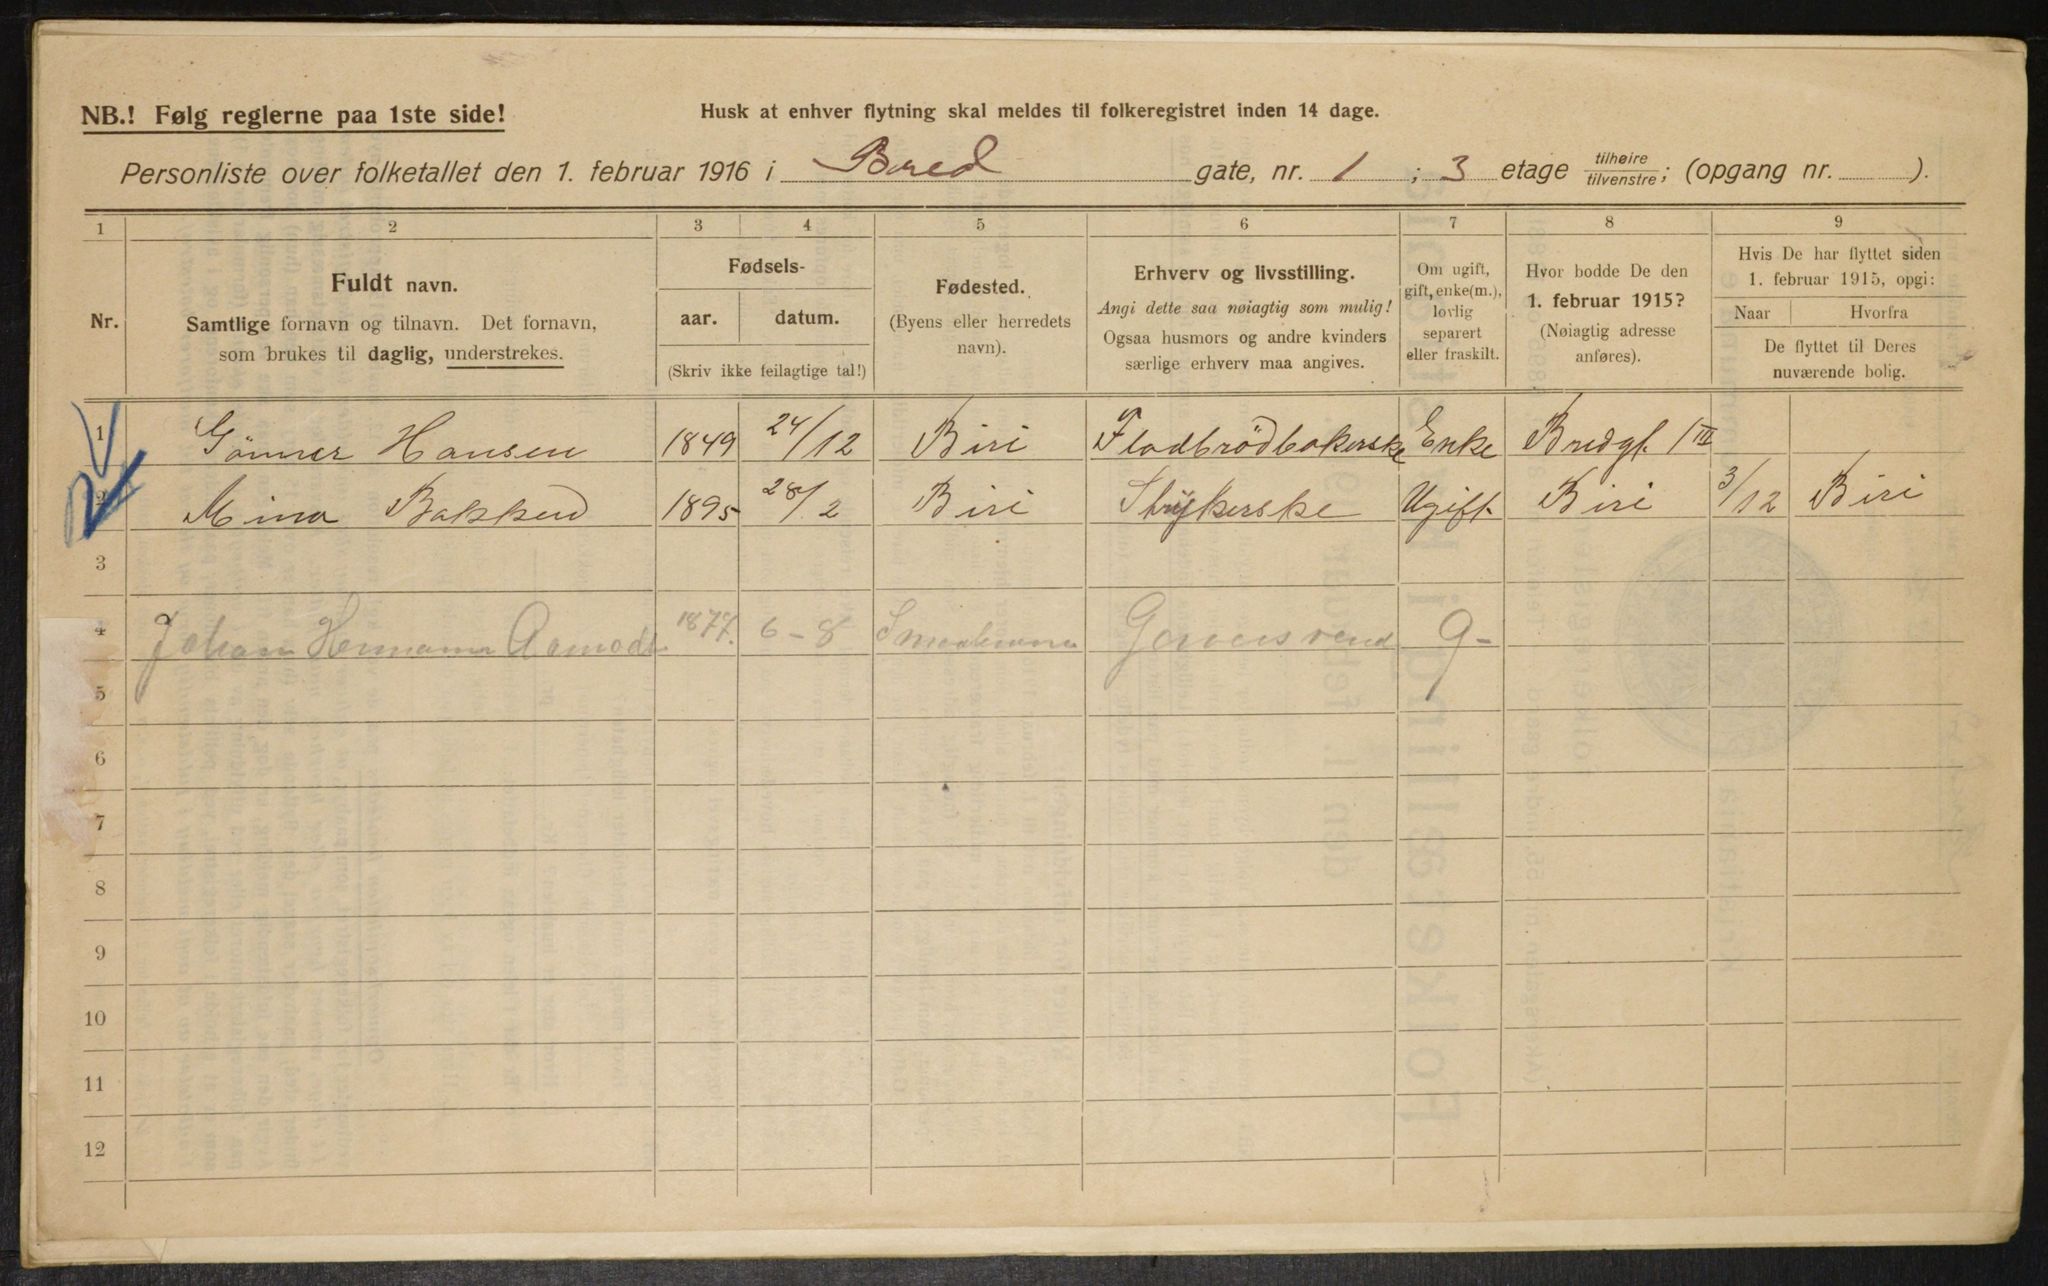 NB.! Følg reglerne paa 1ste side!
Husk at enhver flytning skal meldes til folkeregistret inden 14 dage.
Personliste over folketallet den 1. februar 1916 i Bred gate, nr. 1 ; 3 etage tilhøire/tilvenstre; (opgang nr. ).
1 2 3 4 5 6 7 8 9
Nr.
Fuldt navn.
Samtlige fornavn og tilnavn. Det fornavn,
som brukes til daglig, understrekes.
Fødsels-
aar. datum.
(Skriv ikke feilagtige tal!)
Fødested.
(Byens eller herredets
navn).
Erhverv og livsstilling.
Angi dette saa nøiagtig som mulig!
Ogsaa husmors og andre kvinders
særlige erhverv maa angives.
Om ugift,
gift, enke(m.),
lovlig
separert
eller fraskilt.
Hvor bodde De den
1. februar 1915?
(Nøiagtig adresse
anføres).
Hvis De har flyttet siden
1. februar 1915, opgi:
Naar Hvorfra
De flyttet til Deres
nuværende bolig.
1 Hansen 1849 24/12 Biri Fladbrödbakerske Enke Bredgt. 1 III
2 Mina Bakkend 1895 28/2 Biri Strykerske Ugift. Biri 3/12 Biri
3
4 Johan Hermann Aamodt 1877. 6-8 g-
5
6
7
8
9
10
11
12